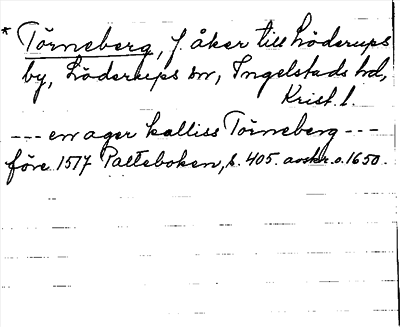 * Törneberg, f. åker till Löderups
by, Löderups sn, Ingelstads hd,
Krist. l.
--- en ager kalliss Törneberg ---
före 1517 Palteboken, s. 405. avskr. o. 1650.